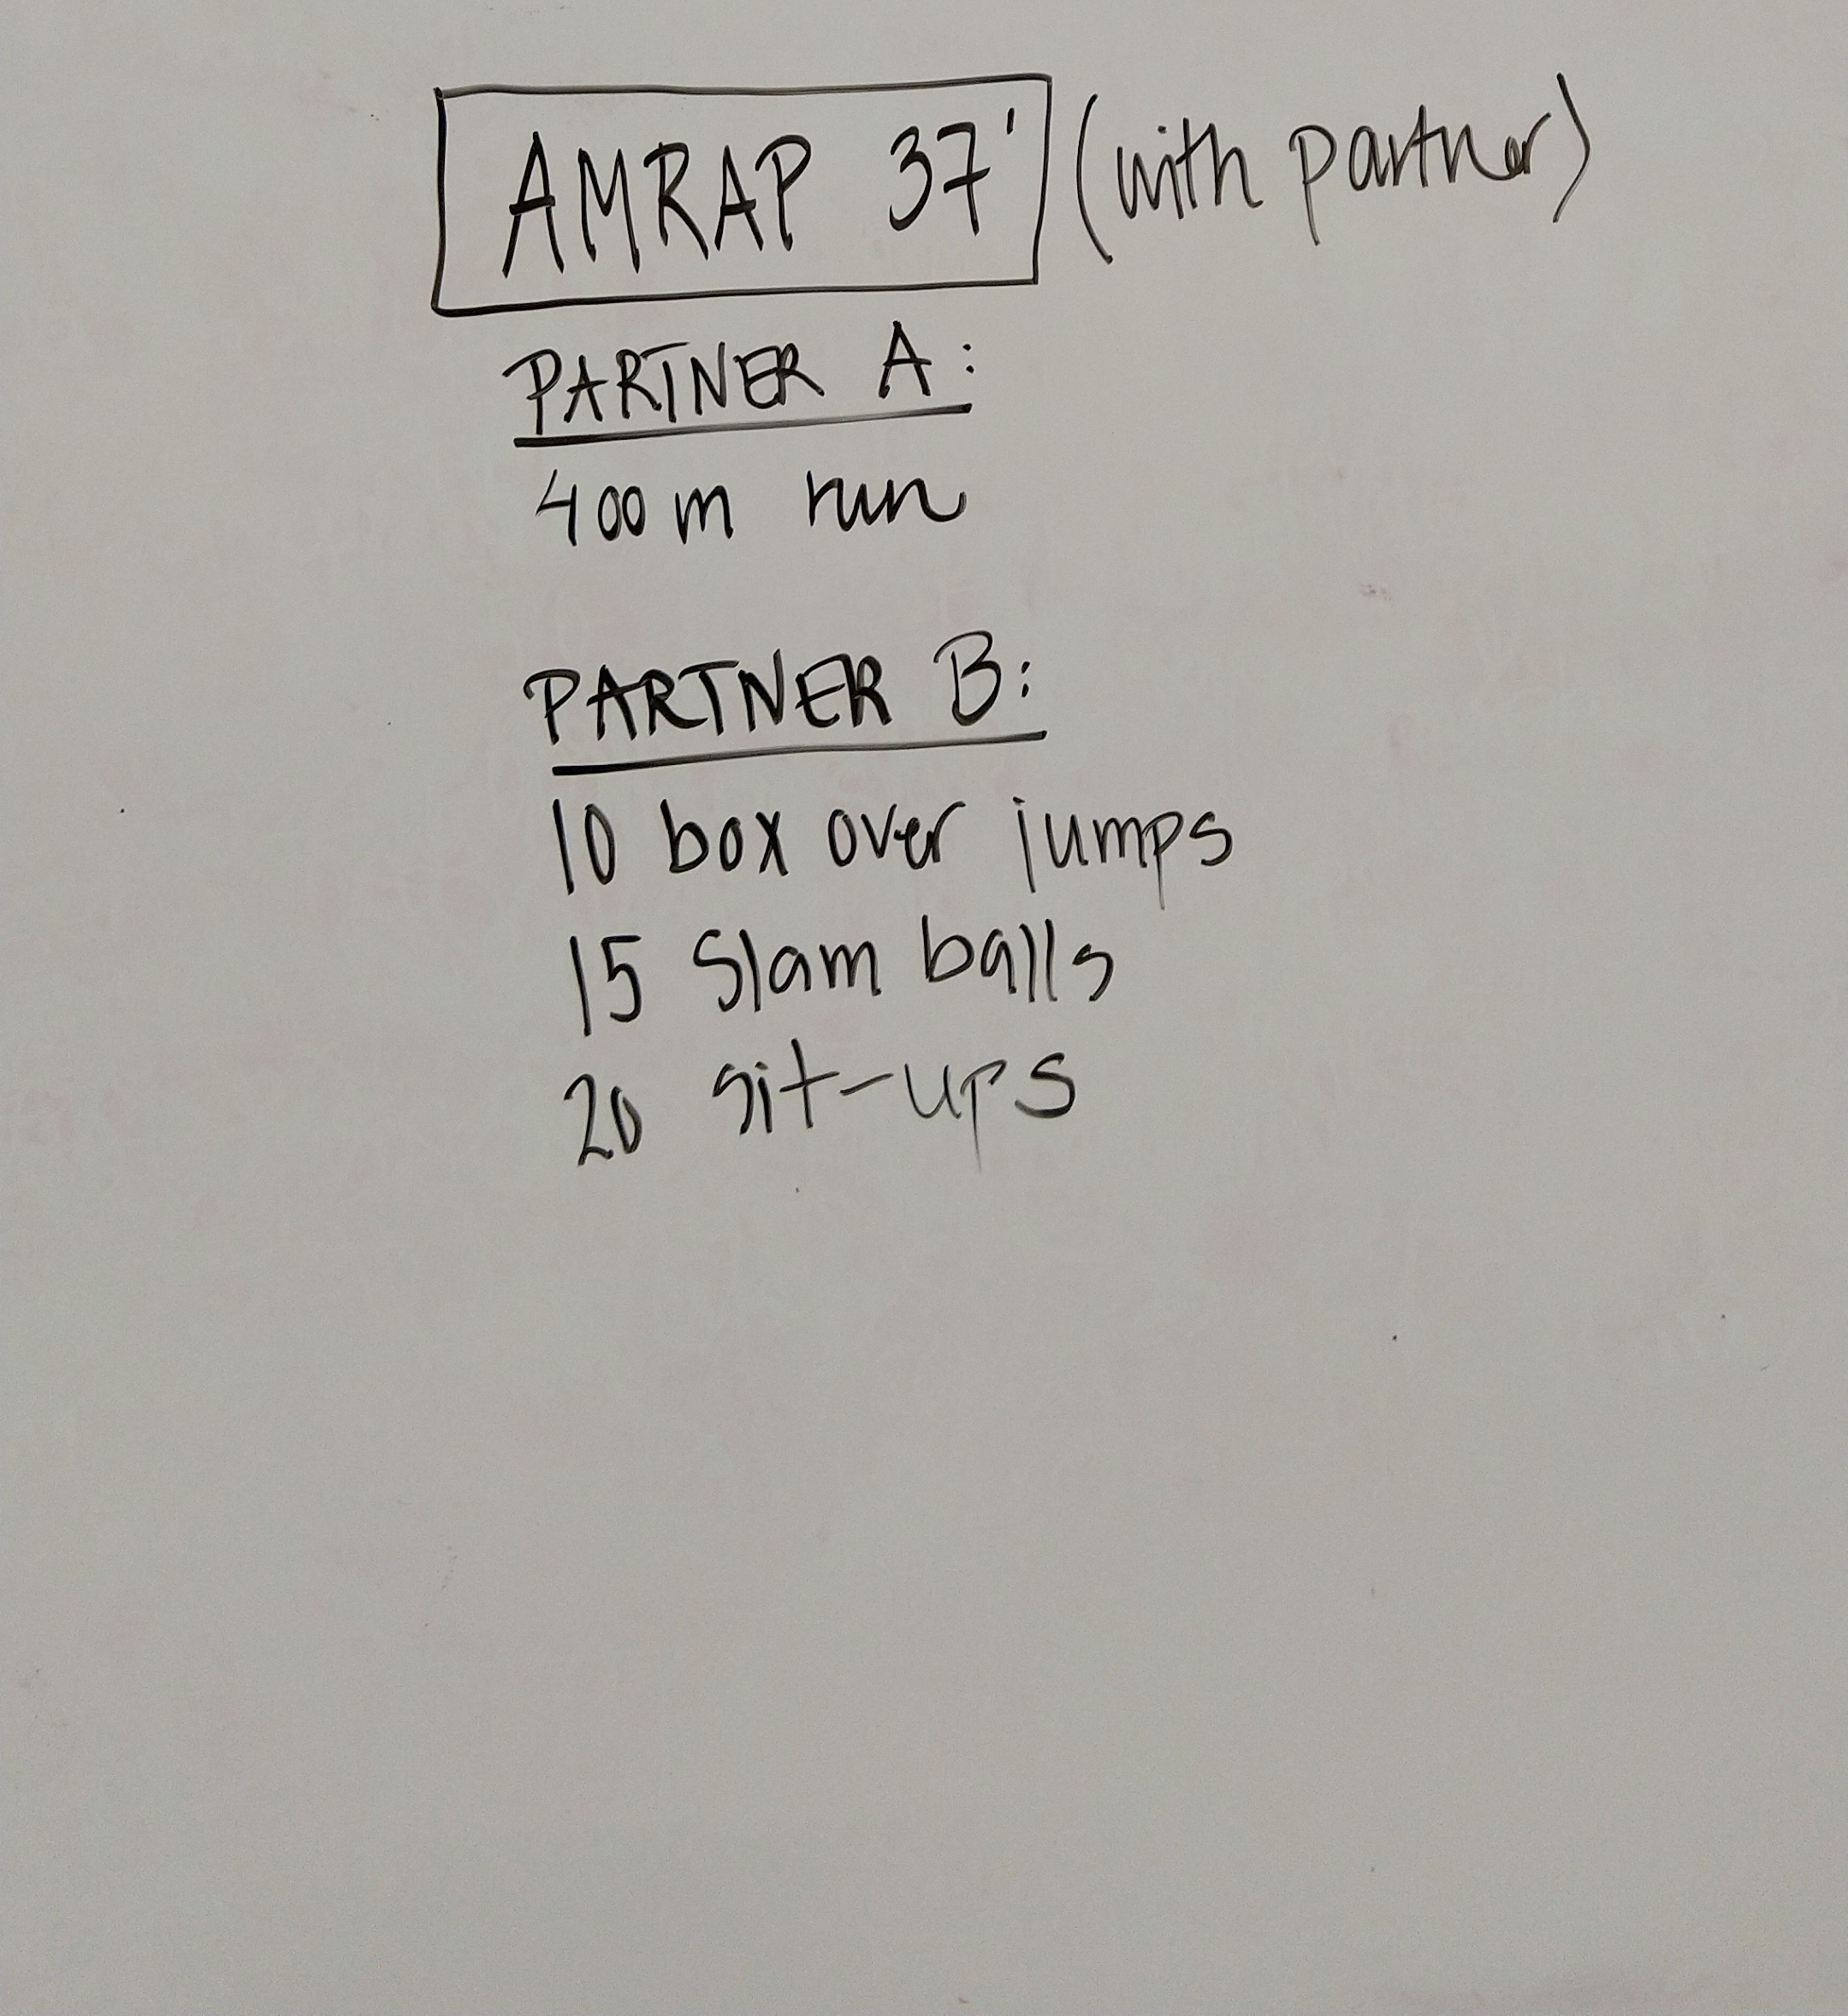 AMRAP 37' (with partner)
PARTNER A:
400 m run
PARTNER B:
10 box over jumps
15 Slam balls
20 sit-ups